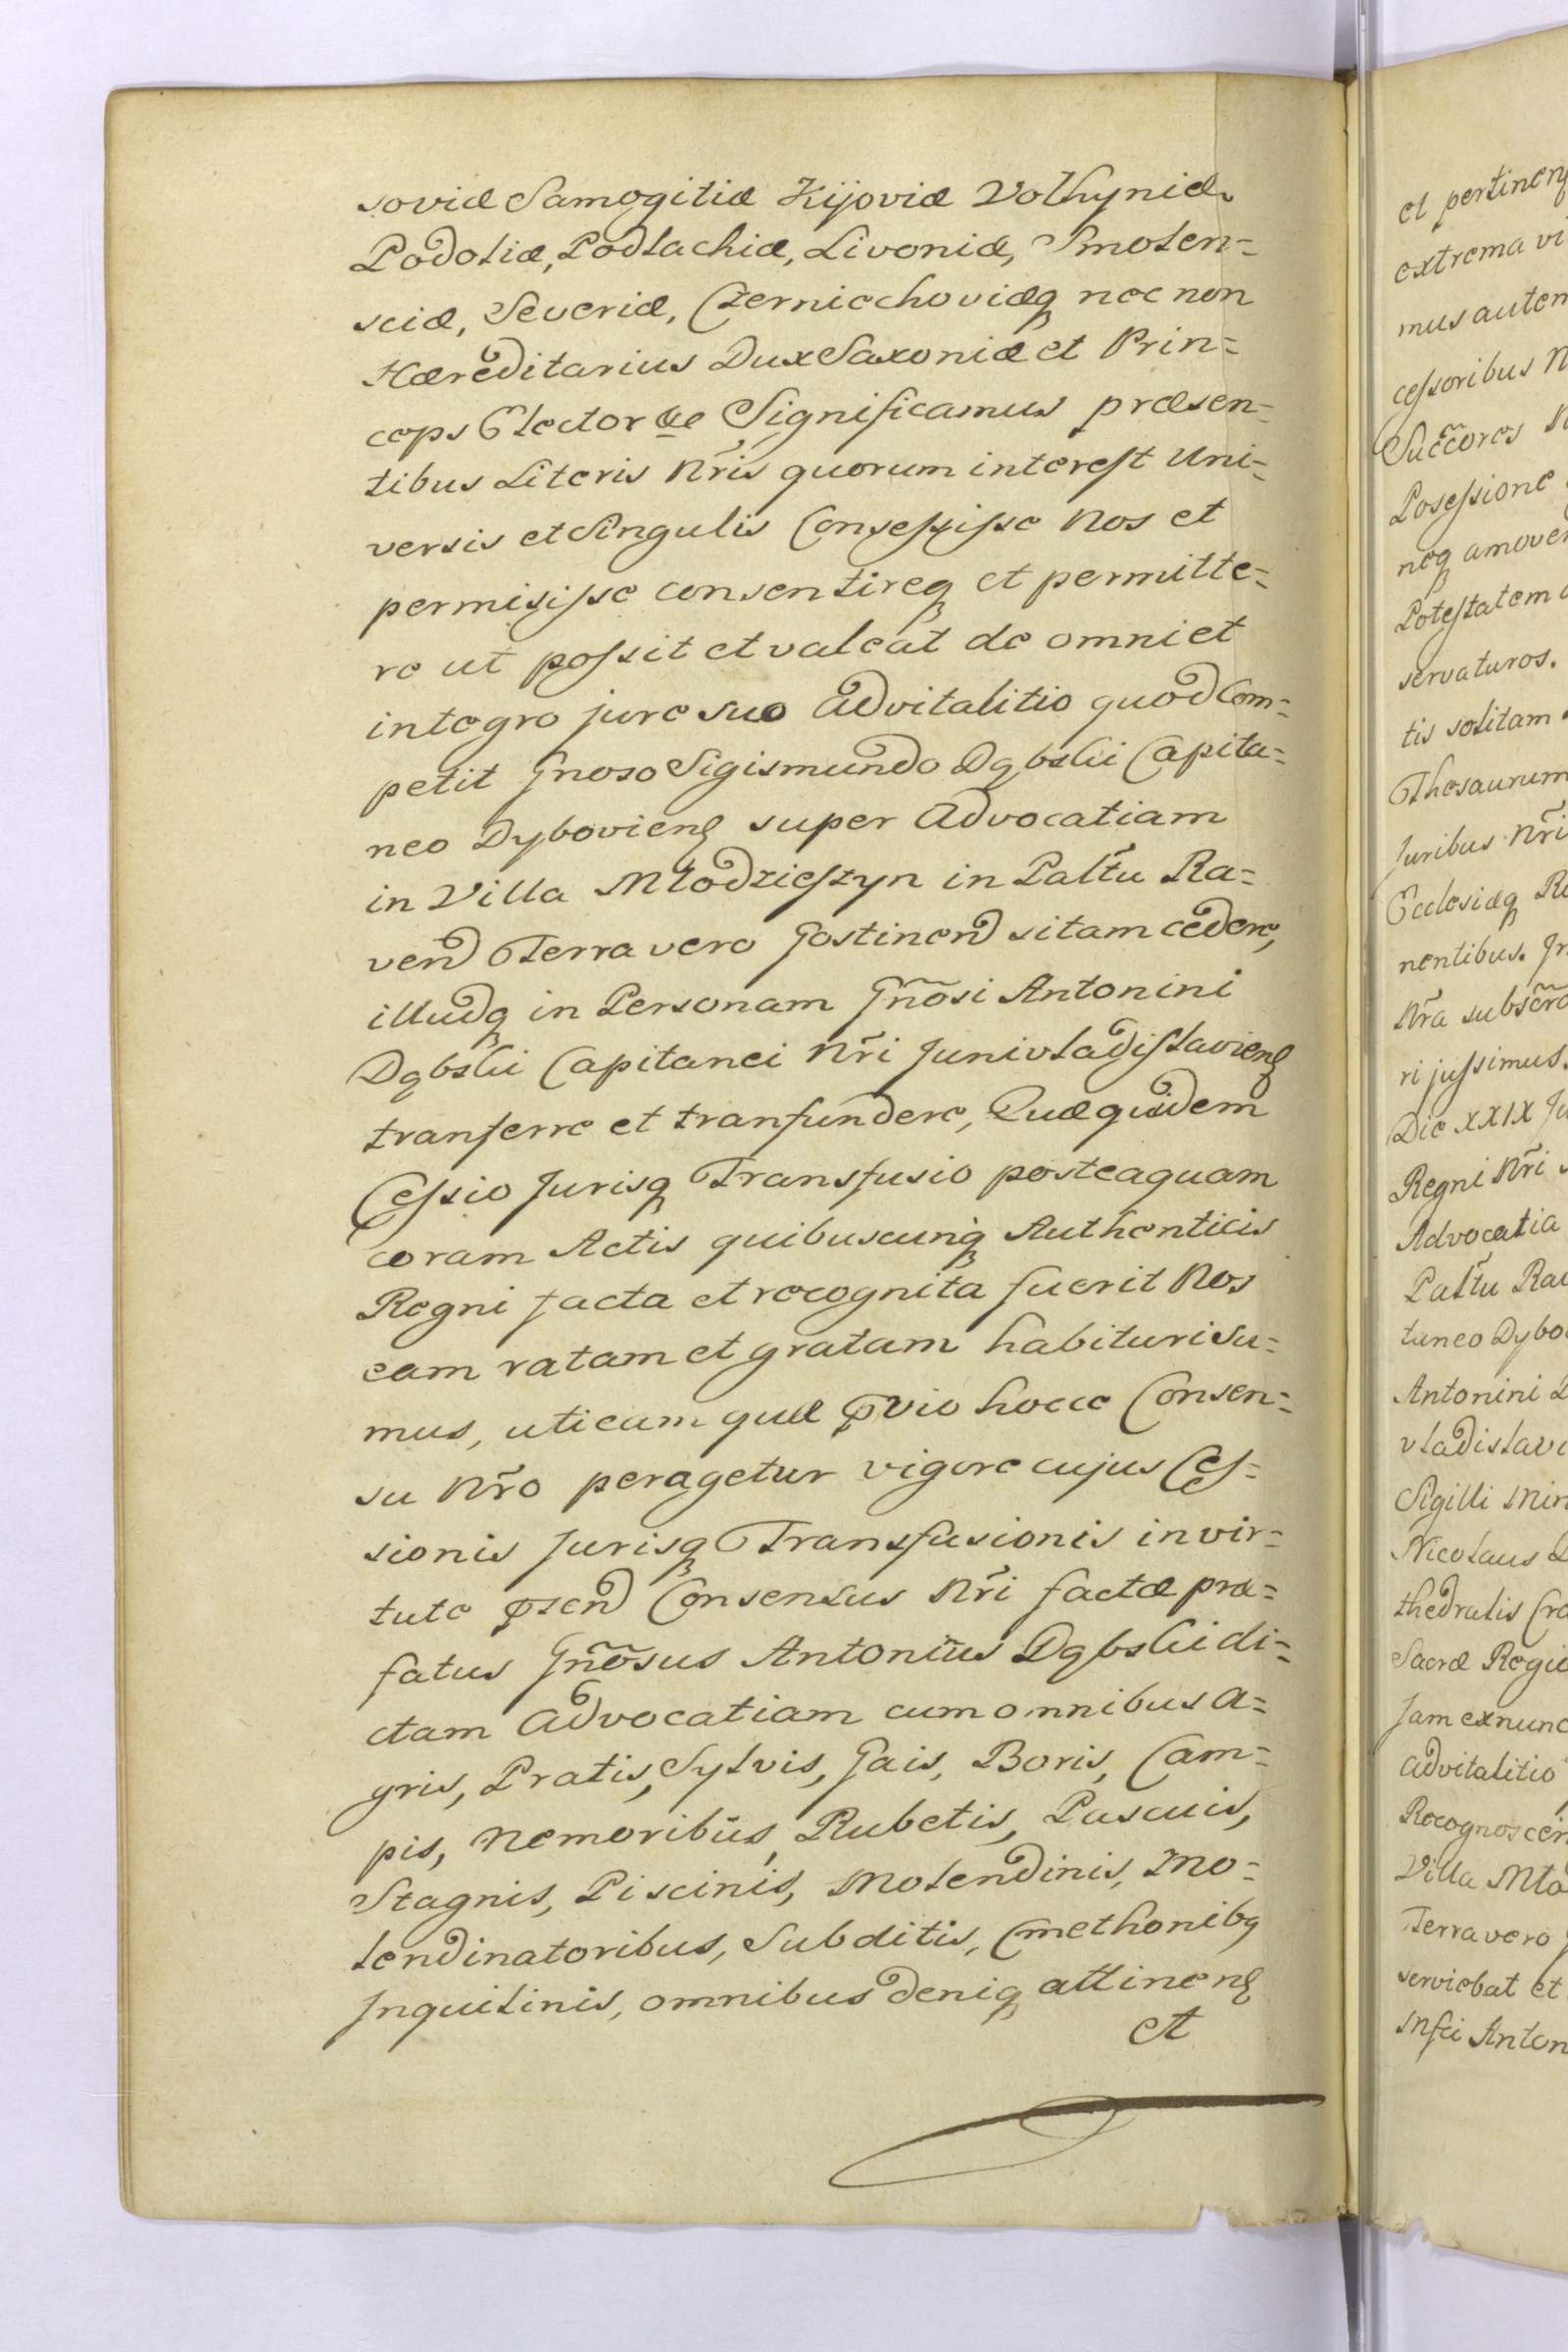 soviæ Samogitiæ Kijoviæ Volhyniæ
Podoliæ, Podlachiæ, Livoniæ, Smolen=
sciæ, Severiæ, Czerniechoviæq nec non
Hæreditarius Dux Saxoniæ et Prin=
ceps Elector &e Significamus præsen=
tibus Literis Nr̃is quorum interest Uni=
versis et Singulis Consessisse Nos et
permisisse consentireq et permitte=
re ut possit et valeat de omni et
integro jure suo Advitalitio quod Com=
petit Gnoso Sigismundo Dąbski Capita=
neo Dybovienß super Advocatiam
in Villa Młodziesżyn in Paltu Ra=
ven Terra vero Gostinen sitam cedere,
illudq in Personam Gñosi Antonini
Dąbski Capitanei Nr̃i Junivladislavienß
transerre et transundere, Quæquidem
Cessio Jurisq Transfusio posteaquam
coram Actis quibuscunq Authenticis
Regni facta et recognita fuerit Nos
eam ratam et gratam habituri su=
mus, uti eam quæ pvio hocce Consen=
su Nr̃o peragetur vigore cujus Ces=
sionis Jurisq Transfusionis in vir=
tute psen Consensus Nr̃i factæ præ=
fatus Gñosus Antonius Dąbski di=
ctam Advocatiam cum omnibus A=
gris, Pratis, Sylvis, Gais, Boris, Cam=
pis, Nemoribus, Rubetis, Pascuis,
Stagnis, Piscinis, Molendinis, Mo=
lendinatoribus, Subditis, Cmethonibq
Inquilinis, omnibus deniq attinenß
et
et pertinen
extrema vi
mus autem
cessoribus N
Succ̃ores N
Posessione
neq amove
Potestatem
servaturos.
tis solitam
Thesaurum
Juribus Nr̃i
Ecclesiæq R
nentibus. In
Nr̃a subscr̃
ri jussimus.
Die XXIX Ju
Regni Nr̃i
Advocatia
Paltu Rav
taneo Dybo
Antonini D
vladislavi
Sigilli Min
Nicolaus D
thedralis Cra
Sacræ Regiæ
Jam exnunc
Advitalitio
Recognoscen
Villa Mło
Terra vero
serviebat et
Anton